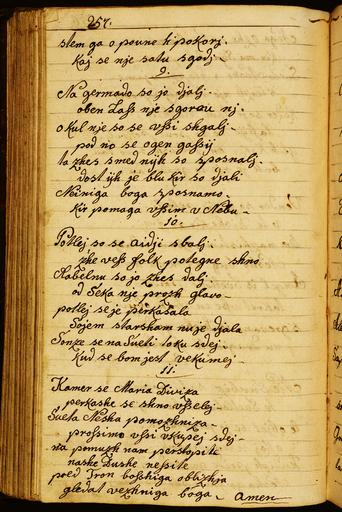 257.
stem ga o povne k pokorj.
Kaj se nje satu sgodj.
9.
Na germado so jo djalj.
oben Lass nje sgorou nj.
okul nje so se vssi shgalj.
pod no se ogen gassij
ta zhes smed nijh so sposnalj.
dost ijh je blu kir so djali
Neiniga boga sposnamo.
Kir pomaga vssim v Nebu.
10.
Potlej so se aidji sbalj.
zhe vess folk potegne shno
Rabelnu so jo zhes dalj.
od Seka nje prozh glavo.
potlej se je perkasala
Sojem starsham nu je djala
Jonze se na Sueti loku sdej.
Kud se bom jest vekumej.
11.
Kamer se Maria Diviza
perkashe se shno vsselej.
Sueta Nesha pomozhniza.
prossimo vssi vkupej sdej.
na pomuzh nam perstopite
nashe Dushe nessite
pred Tron boshiga oblizhja
gledat vezhniga boga. amen